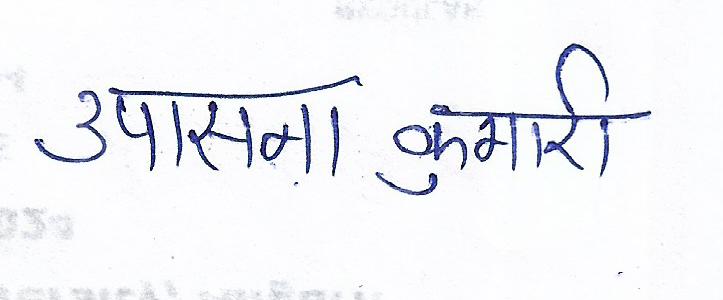 उपासना कुमारी